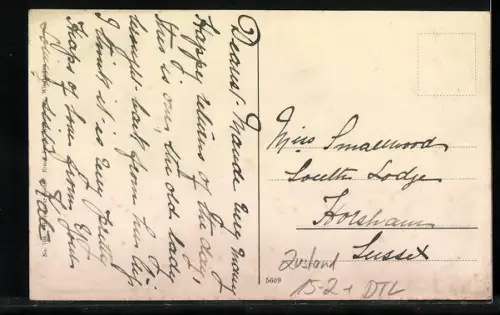 Dearest Maude Very Many
Happy returns of the day,
this is one, the old lady
brought back from her trip
I think it is very pretty
Heaps of love from Yr
loving sister Kate
Miss Smallwood
South Lodge
Horsham
Sussex
Zustand
15-2 + DTL
5609